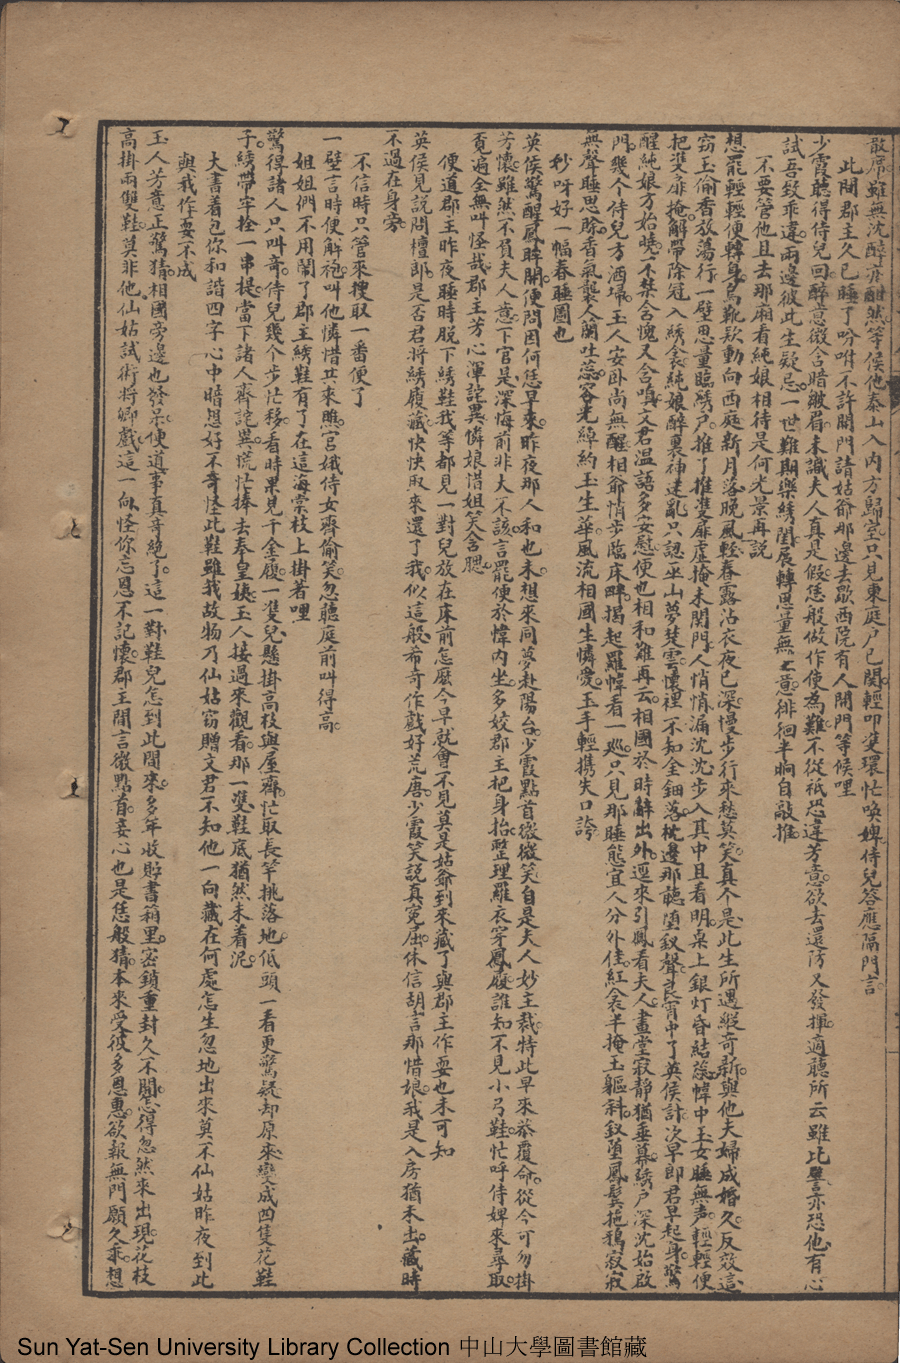 散席雖無沈醉亦酣然等候他泰山入內方歸室只見東庭戶已関輕叩雙環忙喚婢侍兒答應隔門言
此間郡主久已睡了吩咐不許開門請姑爺那邊去歇西院有人開門等候哩
少霞聽得侍兒回醉意微含暗皺眉未識夫人真是假恁般做作使為難不從祇恐違芳意欲去還防又發揮適聽所云雖比譬亦恐他有心
試吾敘乖違兩邊彼此生疑忌一世難期樂綉閨展轉思量無主意徘徊半晌自敲推
不要管他且去那廂看純娘相待是何光景再說
想罷輕輕便轉身烏靴欵動向西庭新月落晚風輕春露沾衣夜已深慢步行來愁莫笑真个是此生所遇縱奇新與他夫婦成婚久反效這
窃玉偷香放蕩行一壁思量臨綉戶推了推雙扉虛掩未関門人悄悄漏沈沈步入其中且看明桌上銀灯昏結蕊幃中玉女睡無声輕輕便
把雙扉掩解帶除冠入綉衾純娘醉裏神迷亂只認巫山夢楚雲懷裡不知全鈿落枕邊那聽墮釵聲良宵中了英侯計次早郎君早起身驚
醒純娘方始曉不禁含愧又含嗔文君温語多安慰便也相和難再云相國於時辭出外逕來引鳳看夫人畫堂寂靜猶垂幕綉戶深沈始啟
門幾个侍兒方洒埽玉人安卧尚無醒相爺悄步臨床畔揭起羅幃看一巡只見那睡態宜人分外佳紅衾半掩玉軀斜釵墮鳳鬓拖鴉寂寂
無聲睡思賒香氣襲人蘭吐蕊容光綽約玉生華風流相國生憐愛玉手輕攜失口誇
妙呀好一幅春睡圖也
英侯驚醒鳳眸開便問因何恁早來昨夜那人和也未想來同夢赴陽台少霞點首微微笑自是夫人妙主裁特此早來恭覆命從今可勿掛
芳懷雖然不負夫人意下官是深悔前非大不該言罷便於幃內坐多姣郡主把身抬整理羅衣穿鳳履誰知不見小弓鞋忙呼侍婢來尋取
覔遍全無叫怪哉郡主芳心渾詫異憐娘惜姐笑含腮
便道郡主昨夜睡時脱下綉鞋我等都見一對兒放在床前怎麼今早就會不見莫是姑爺到來藏了與郡主作耍也未可知
英侯見說問檀郎是否君將綉履藏快快取來還了我似這般希奇作戯好荒唐少霞笑說真寃屈休信胡言那惜娘我是入房猶未出藏時
不過在身旁
不信時只管來搜取一番便了
一壁言時便解袍叫他憐惜共來瞧宫娥侍女齊偷笑忽聽庭前叫得高
姐姐們不用鬧了郡主綉鞋有了在這海棠枝上掛着哩
驚得諸人只叫奇侍兒幾个步忙移看時果見千金履一隻兒懸掛高枝與屋齊忙取長竿挑落地低頭一看更驚疑却原來變成四隻花鞋
子綉帶牢拴一串提當下諸人齊詫異慌忙捧去奉皇姨玉人接過來觀看那一雙鞋底猶然未着泥
大書着包你和諧四字心中暗想好不奇怪此鞋雖我故物乃仙姑窃贈文君不知他一向藏在何處怎生忽地出來莫不仙姑昨夜到此
與我作耍不成
玉人芳意正驚猜相國旁邊也發呆便道事真奇絶了這一對鞋兒怎到此間來多年收貯書箱里密鎖重封久不開怎得忽然來出現花枝
高掛兩雙鞋莫非他仙姑試術將卿戲這一向怪你忘恩不記懷郡主聞言微點首妾心也是恁般猜本來受彼多恩惠欲報無門願久乖想
Sun Yat-Sen University Library Collection 中山大學圖書館藏